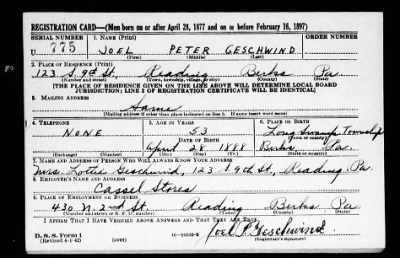 REGISTRATION CARD—(Men born on or after April 28, 1877 and on or before February 16, 1897)
SERIAL NUMBER 1. NAME (Print) ORDER NUMBER
U. 775 JOEL PETER GESCHWIND
(First) (Middle) (Last)
2. PLACE OF RESIDENCE (Print)
123 S. 9th St, Reading Berks Pa.
(Number and street) (Town, township, village, or city) (County) (State)
[THE PLACE OF RESIDENCE GIVEN ON THE LINE ABOVE WILL DETERMINE LOCAL BOARD
JURISDICTION; LINE 2 OF REGISTRATION CERTIFICATE WILL BE IDENTICAL]
3. MAILING ADDRESS
Same
[Mailing address if other than place indicated on line 2. If same insert word same]
4. TELEPHONE 5. AGE IN YEARS 6. PLACE OF BIRTH
NONE 53 Long Swamp Township
DATE OF BIRTH (Town or county)
April 28 1888 Berks Pa.
(Exchange) (Number) (Mo.) (Day) (Yr.) (State or country)
7. NAME AND ADDRESS OF PERSON WHO WILL ALWAYS KNOW YOUR ADDRESS
Mrs. Lottie Geschwind, 123 S. 9th St, Reading, Pa.
8. EMPLOYER'S NAME AND ADDRESS
Cassel Stores
9. PLACE OF EMPLOYMENT OR BUSINESS
430 N. 2nd St Reading Berks Pa.
(Number and street or R. F. D. number) (Town) (County) (State)
I AFFIRM THAT I HAVE VERIFIED ABOVE ANSWERS AND THAT THEY ARE TRUE.
D. S. S. Form 1
(Revised 4-1-42) (over) Joel P. Geschwind
(Registrant's signature)